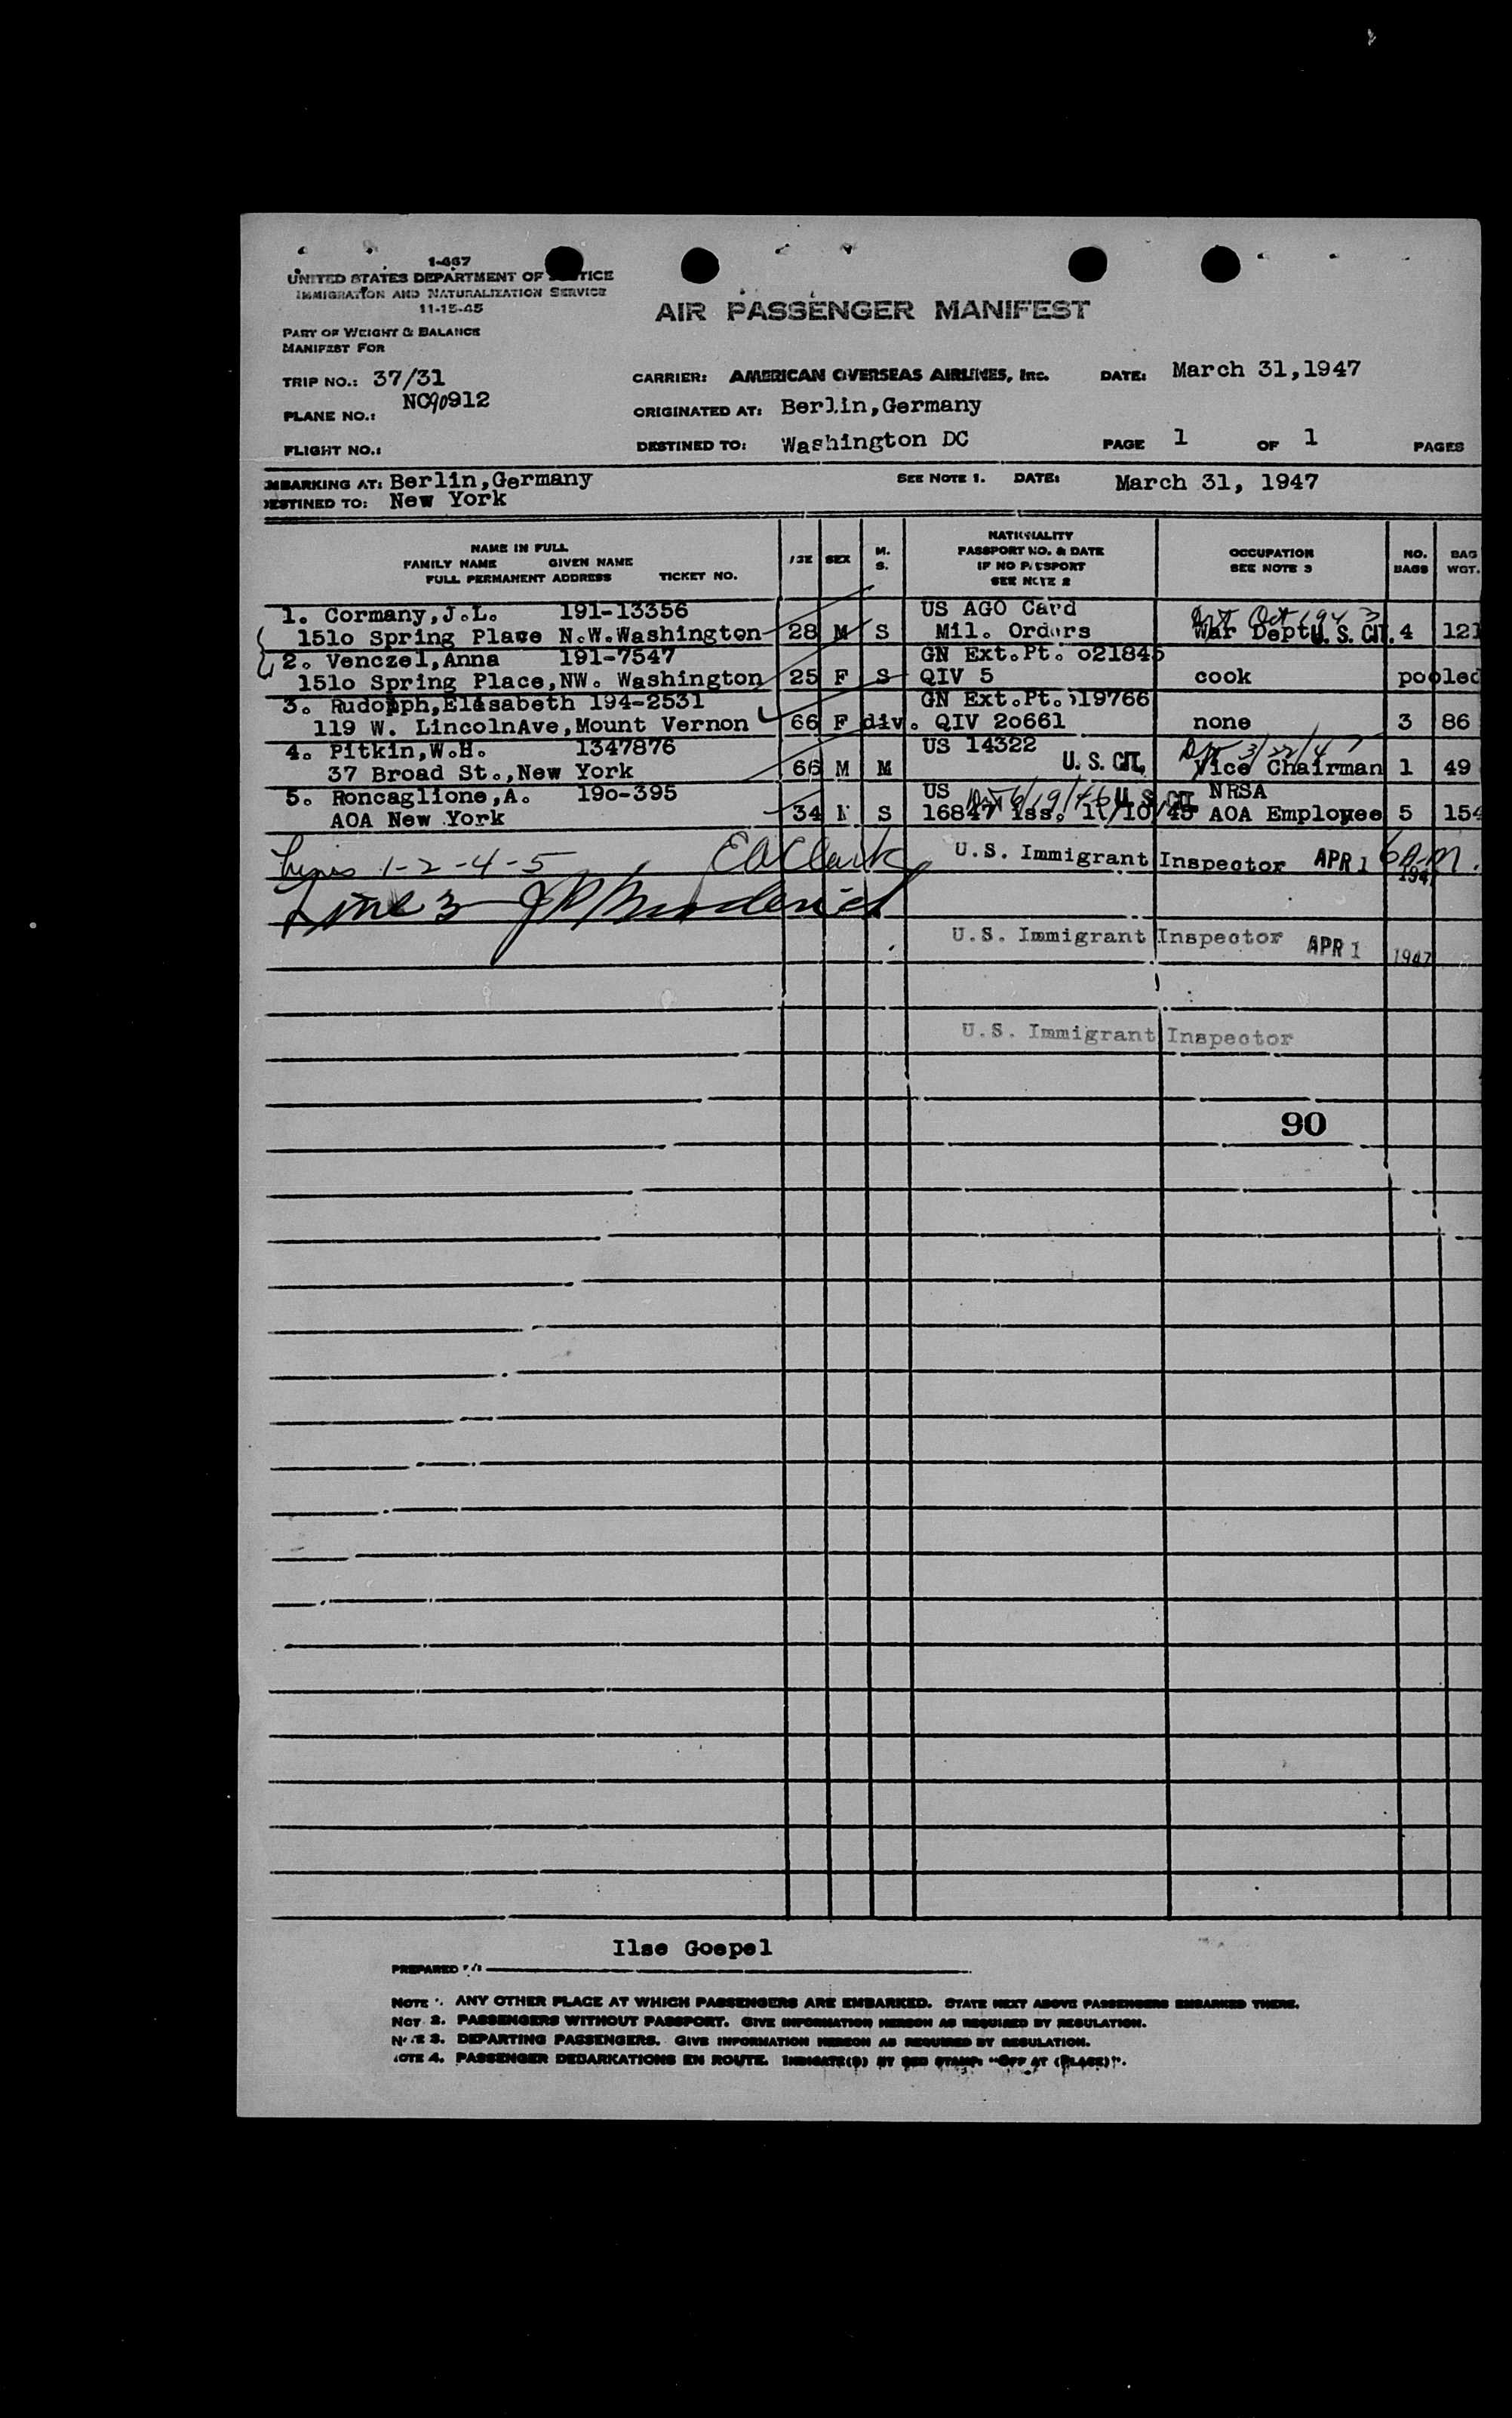 1-467
UNITED STATES DEPARTMENT OF JUSTICE
IMMIGRATION AND NATURALIZATION SERVICE
11-15-45
AIR PASSENGER MANIFEST
PART OF WEIGHT & BALANCE
MANIFEST FOR
TRIP NO.: 37/31
CARRIER: AMERICAN OVERSEAS AIRLINES, Inc. DATE: March 31,1947
PLANE NO.: NC90912
ORIGINATED AT: Berlin,Germany
FLIGHT NO.: DESTINED TO: Washington DC PAGE 1 OF 1 PAGES
EMBARKING AT: Berlin,Germany SEE NOTE 1. DATE: March 31, 1947
DESTINED TO: New York
NAME IN FULL
FAMILY NAME GIVEN NAME
FULL PERMANENT ADDRESS TICKET NO.
AGE SEX M. S.
NATIONALITY
PASSPORT NO. & DATE
IF NO PASSPORT
SEE NOTE 2
OCCUPATION
SEE NOTE 3
NO. BAGS
BAG WGT.
1. Cormany,J.L. 191-13356 US AGO Card Oct 1943
151o Spring Place N.W.Washington 28 M S Mil. Orders War Dept U. S. CIT. 4 121
2. Venczel,Anna 191-7547 GN Ext.Pt. o21845
151o Spring Place,NW. Washington 25 F S QIV 5 cook pooled
3. Rudolph,Elisabeth 194-2531 GN Ext.Pt. 19766
119 W. LincolnAve,Mount Vernon 66 F div. QIV 2o661 none 3 86
4. Pitkin,W.H. 1347876 US 14322 3/22/47
37 Broad St.,New York 66 M M U. S. CIT. Vice Chairman 1 49
5. Roncaglione,A. 19o-395 US 6/19/46 U. S. CIT. NRSA
AOA New York 34 M S 16847 iss. 11/10/45 AOA Employee 5 154
Lines 1-2-4-5 E A Clark U.S. Immigrant Inspector APR 1 1947 6 A.M.
Line 3 J P Broderick
U.S. Immigrant Inspector APR 1 1947
U.S. Immigrant Inspector
90
Ilse Goepel
PREPARED BY:
NOTE 1. ANY OTHER PLACE AT WHICH PASSENGERS ARE EMBARKED. STATE NEXT ABOVE PASSENGERS EMBARKED THERE.
NOTE 2. PASSENGERS WITHOUT PASSPORT. GIVE INFORMATION HEREON AS REQUIRED BY REGULATION.
NOTE 3. DEPARTING PASSENGERS. GIVE INFORMATION HEREON AS REQUIRED BY REGULATION.
NOTE 4. PASSENGER DEBARKATIONS EN ROUTE. INDICATE(D) BY RED STAMP: "OFF AT (PLACE)".